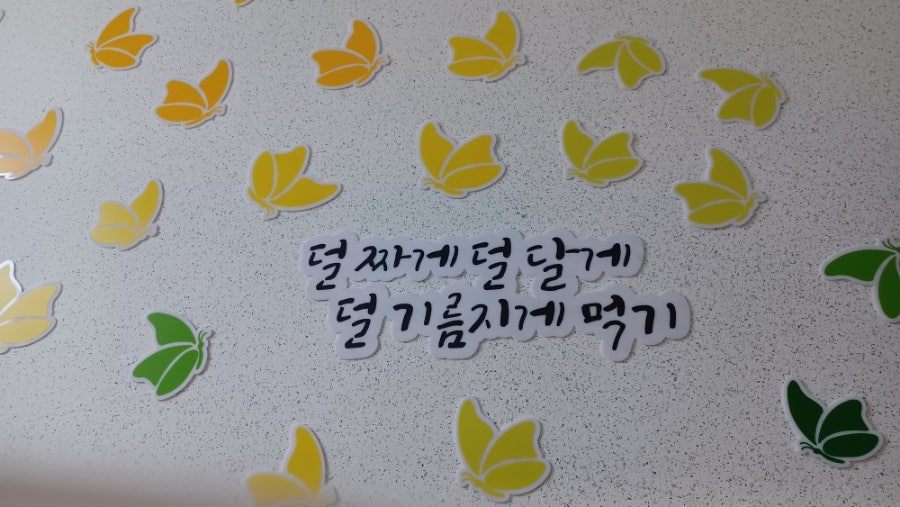 덜 짜게 덜 달게
덜 기름지게 먹기